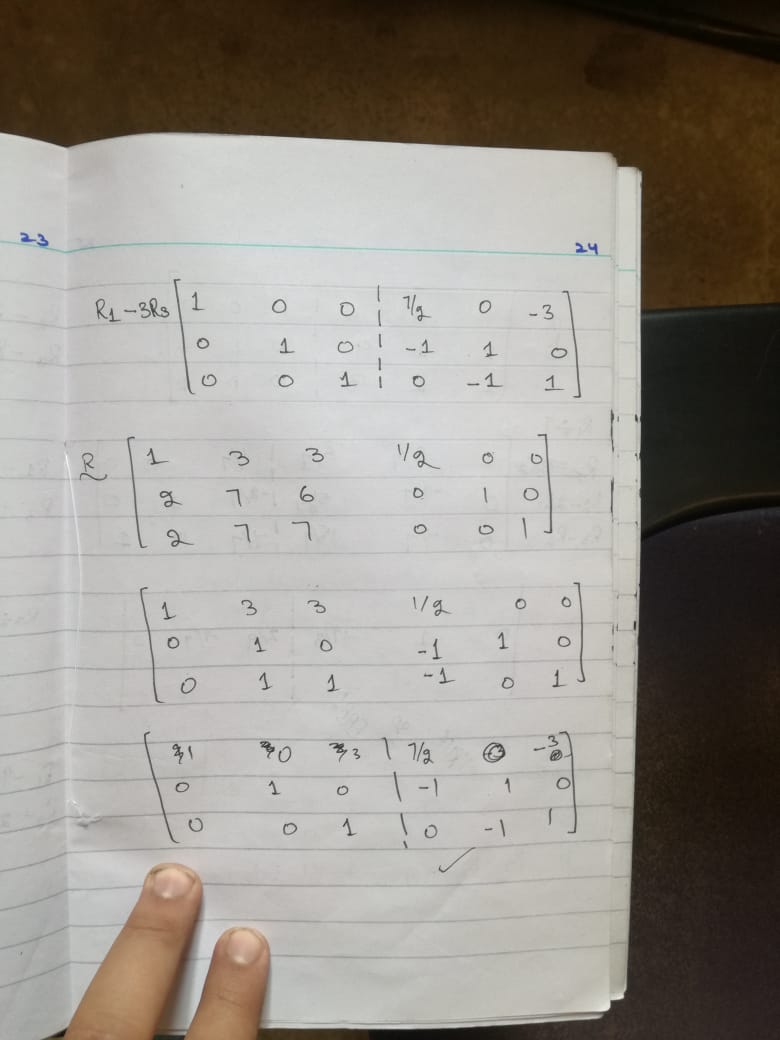 23
24
R1-3R3 1 0 0 7/2 0 -3
0 1 0 -1 1 0
0 0 1 0 -1 1
R 1 3 3 1/2 0 0
2 7 6 0 1 0
2 7 7 0 0 1
1 3 3 1/2 0 0
0 1 0 -1 1 0
0 1 1 -1 0 1
1 0 3 7/2 -3
0 1 0 -1 1 0
0 0 1 0 -1 1